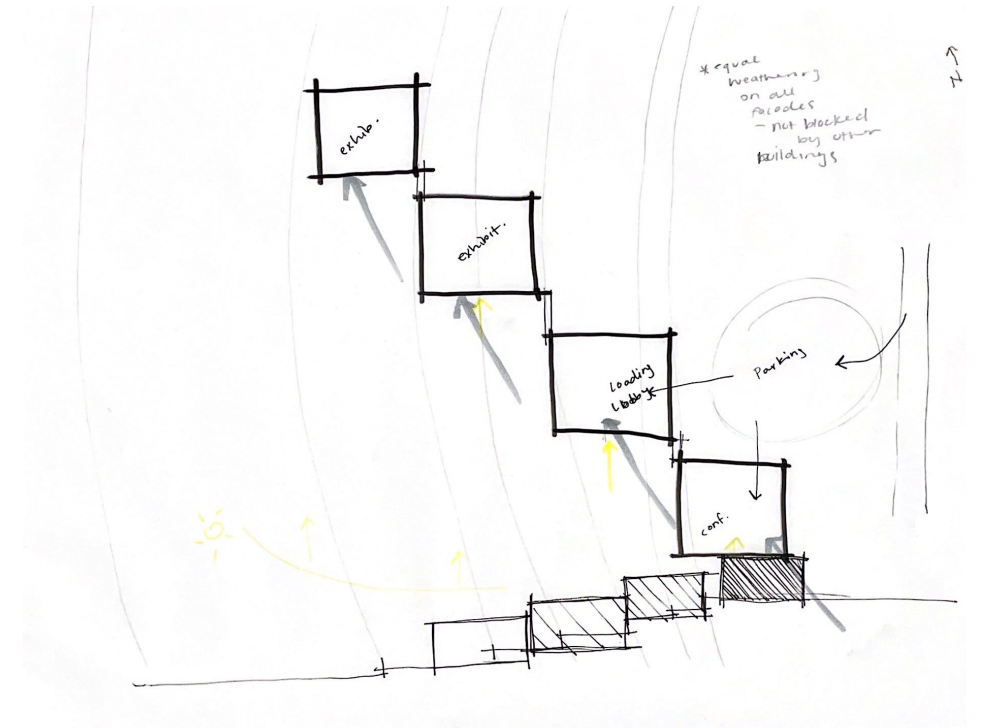 * equal
weathering
on all
facades
- not blocked
by other
buildings
N
exhib.
exhibit.
Loading
Lobby
Parking
conf.